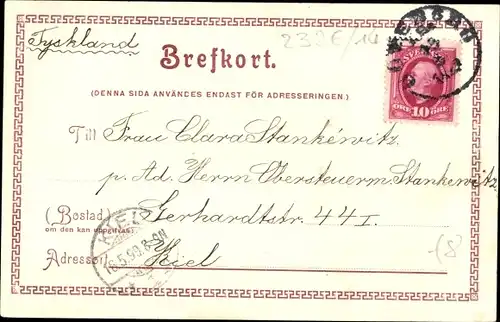 Tyskland
232E/14
Brefkort.
(DENNA SIDA ANVÄNDES ENDAST FÖR ADRESSERINGEN.)
SVERIGE
ÖRE 10 ÖRE
Till Frau Clara Stankéwitz,
p. Ad. Herrn Obersteuerm. Stankewitz
(Bostad) Gerhardtstr. 44 I.
om den kan uppgifvas.
Adressort Kiel
KIEL
16.5.99.8-9N
(8